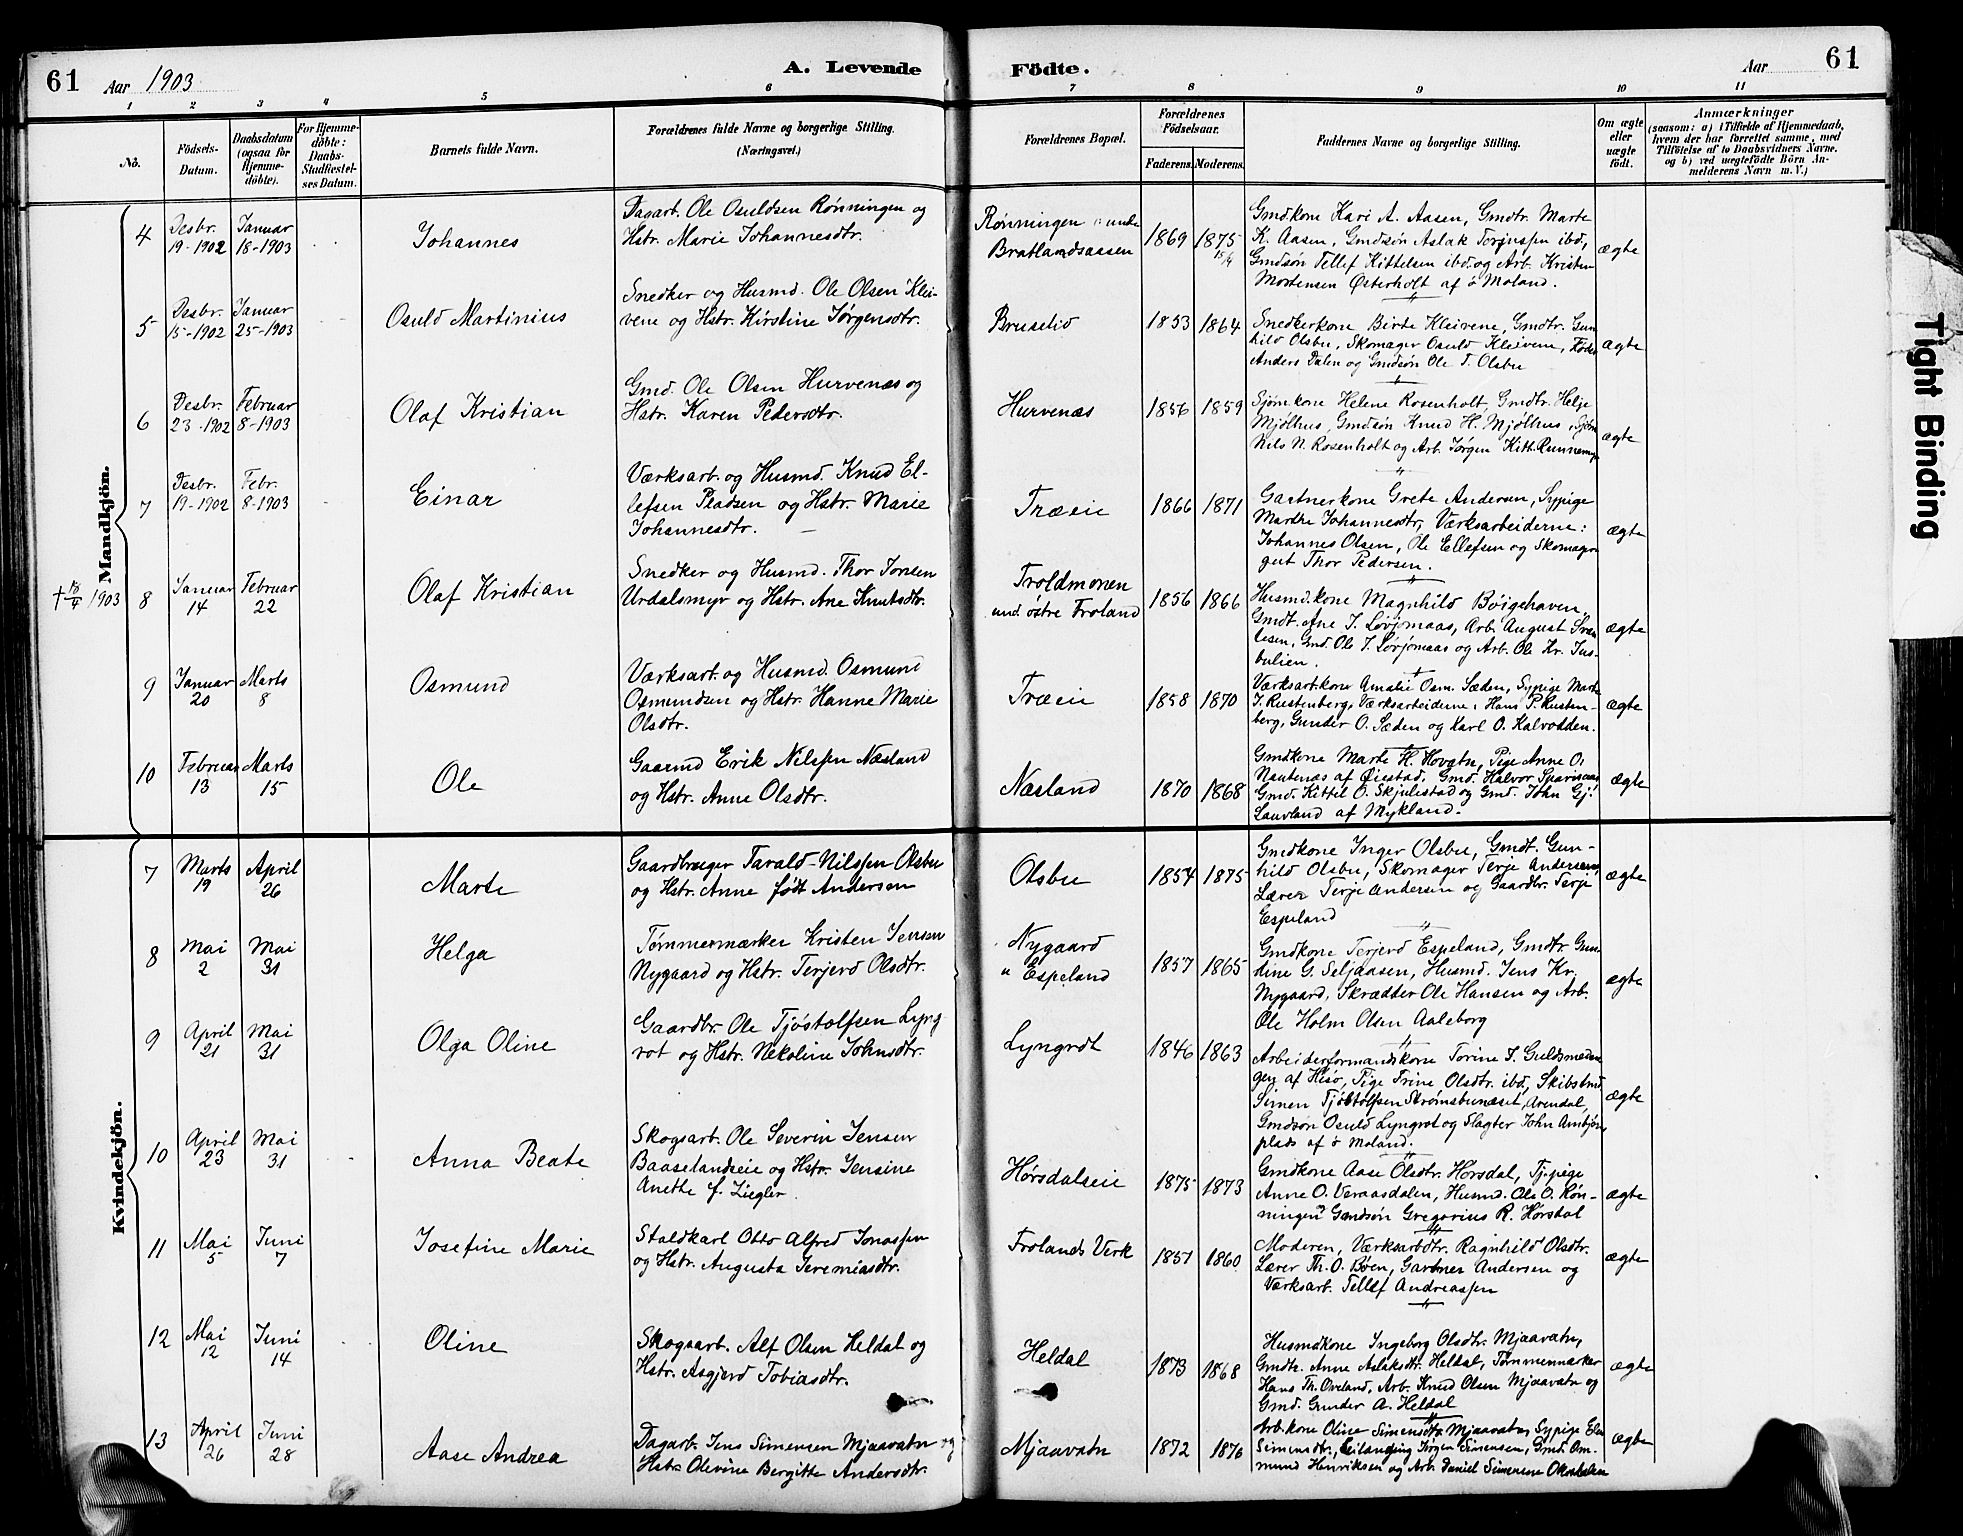 61
Aar 1903
A. Levende
Födte.
Aar
61
1
2
3
4
5
6
7
8
9
10
11
No.
Födsels-
Datum.
Daabsdatum
(ogsaa for
Hjemme-
döbte).
For Hjemme-
döbte:
Daabs-
Stadfæstel-
ses Datum.
Barnets fulde Navn.
Forældrenes fulde Navne og borgerlige Stilling.
(Næringsvei.)
Forældrenes Bopæl.
Forældrenes
Födselsaar.
Faderens.
Moderens.
Faddernes Navne og borgerlige Stilling.
Om ægte
eller
uægte
födt.
Anmærkninger
(saasom: a) i Tilfælde af Hjemmedaab,
hvem der har forrettet samme, med
Tilföielse af to Daabsvidners Navne.
og b) ved uægtefödte Börn An-
melderens Navn m. V.)
Mandkjön.
4
Desbr.
19-1902
Januar
18-1903
Johannes
Dagarb. Ole Osuldsen Rønningen og
Hstr. Marie Johannesdtr.
Rønningen unde
Bratlandsaasen
1869
1875
15/9
Gmdkone Kari A. Aasen, Gmdtr. Marte
K. Aasen, Gmdsøn Aslak Torjussen ibd,
Gmdsøn Tellef Kittelsen ibd. og Arb. Kristen
Mortensen Østerholt af ö Moland.
ægte
5
Desbr.
15-1902
Januar
25-1903
Osuld Martinius
Snedker og Husmd. Ole Olsen Klei-
vene og Hstr. Kirstine Jørgensdtr.
Bruselid
1853
1864
Snedkerkone Birte Kleivene, Gmdtr. Gun
hild Olsbu, Skomager Osuld Kleivene,
Anders Dalen og Gmdsøn Ole T. Olsbu
ægte
6
Desbr.
23-1902
Februar
8-1903
Olaf Kristian
Gmd. Ole Olsen Hurvenæs og
Hstr. Karen Pedersdtr.
Hurvenæs
1856
1859
Sjømkone Helene Rosenholt, Gmdtr. Helje
Mjølhus, Gmdsøn Knud H. Mjølhus,
Nils N. Rosenholt og Arb. Jørgen Kitt.
ægte
7
Desbr.
19-1902
Febr.
8-1903
Einar
Værksarb. og Husmd. Knud El-
lefsen Pladsen og Hstr. Marie
Johannesdtr.
Træeie
1866
1871
Gartnerkone Grete Andersen, Sypige
Marthe Johannesdtr, Værksarbeiderne:
Johannes Olsen, Ole Ellefsen og Skomager
gut Thor Pedersen.
ægte
† 18/4 1903
8
Januar
14
Februar
22
Olaf Kristian
Snedker og Husmd. Thor Jonsen
Urdalsmyr og Hstr. Ane Knutsdtr.
Troldmonen
und. østre Froland
1856
1866
Husmd.kone Magnhild Bøigehaven,
Gmdt. Ane J. Løvjomaas, Arb. August Sven
lesen, Gmd. Ole J. Lørjomaas og Arb. Ole Kr. Jus-
bulien.
ægte
9
Januar
20
Marts
8
Osmund
Værksarb. og Husmd. Osmund
Osmundsen og Hstr. Hanne Marie
Olsdtr.
Træeie
1858
1870
Værksarb.kone Amalie Osm. Sæden, Sypige Marte
J. Rustenberg, Værksarbeiderne: Hans P. Rusten-
berg, Gunder O. Sæden og Karl O. Kalvodden.
ægte
10
Februar
13
Marts
15
Ole
Gaarmd Erik Nilssen Næsland
og Hstr. Anne Olsdtr.
Næsland
1870
1868
Gmdkone Marte H. Hovatn, Pige Anne O.
Nautenæs af Øiestad. Gmd. Halvor
Gmd. Kittel O. Skjulestad og Gmd. John Gj.
Lauvland af Mykland.
ægte
Kvindekjön.
7
Marts
19
April
26
Marte
Gaardbruger Tarald Nilssen Olsbu
og Hstr. Anne født Andersen
Olsbu
1854
1875
Gmdkone Inger Olsbu, Gmdt. Gun-
hild Olsbu, Skomager Terje Andersen,
Lærer Terje Andersen og Gaardbr. Terje
Espeland
ægte
8
Mai
2
Mai
31
Helga
Tømmermærker Kristen Jensen
Nygaard og Hstr. Terjerd Olsdtr.
Nygaard
u Espeland
1857
1865
Gmdkone Terjerd Espeland, Gmdtr. Gun-
dine G. Seljaasen, Husmd. Jens Kr.
Nygaard, Skrædder Ole Hansen og Arb.
Ole Holm Olsen Aaleborg
ægte
9
April
21
Mai
31
Olga Oline
Gaardbr. Ole Tjøstolfsen Lyng
rot og Hstr. Nekoline Johnsdtr.
Lyngrot
1846
1863
Arbeiderformandskone Torine J. Guldsmeden
gen af Hisø, Pige Trine Olsdtr. ibd, Skibstmd.
Simen Tjøstolfsen Strømsbunæset, Arendal,
Gmdsøn Osuld Lyngrot og Slagter John Ambjörn
plads af ö Moland.
ægte
10
April
23
Mai
31
Anna Beate
Skogsarb. Ole Severin Jensen
Baaselandseie og Hstr. Jensine
Anethe f. Ziegler.
Hørsdalseie
1875
1873
Gmdkone Aase Olsdtr. Hørsdal, Tj.pige
Anne O. Veraasdalen, Husmd. Ole O. Røn-
ningen Gmdsøn Gregorius R. Hørsdal
ægte
11
Mai
5
Juni
7
Josefine Marie
Staldkarl Otto Alfred Jonassen
og Hstr. Augusta Jeremiasdtr.
Frolands Verk
1851
1860
Moderen, Værksarbdtr. Ragnhild Olsdtr.
Lærer Th. O. Bøen, Gartner Andersen og
Værksarb. Tellef Andreassen
ægte
12
Mai
12
Juni
14
Oline
Skogsarb. Alf Olsen Heldal og
Hstr. Asgjerd Tobiasdtr.
Heldal
1873
1868
Husmdkone Ingeborg Olsdtr. Mjaavatn,
Gmdtr. Anne Aslaksdtr. Heldal, Tømmermærker
Hans Th. Oveland, Arb. Knud Olsen Mjaavatn og
Gmd. Gunder A. Heldal
ægte
13
April
26
Juni
28
Aase Andrea
Dagarb. Jens Simensen Mjaavatn og
Hstr. Olevine Bergitte Andersdtr.
Mjaavatn
1872
1876
Arb.kone Oline Simensdtr. Mjaavatn, Sypige Elen
Simensdtr, Jørgen Simensen, Gmd. Om-
mund Henriksen og Arb. Daniel Simensen
ægte
Tight Binding